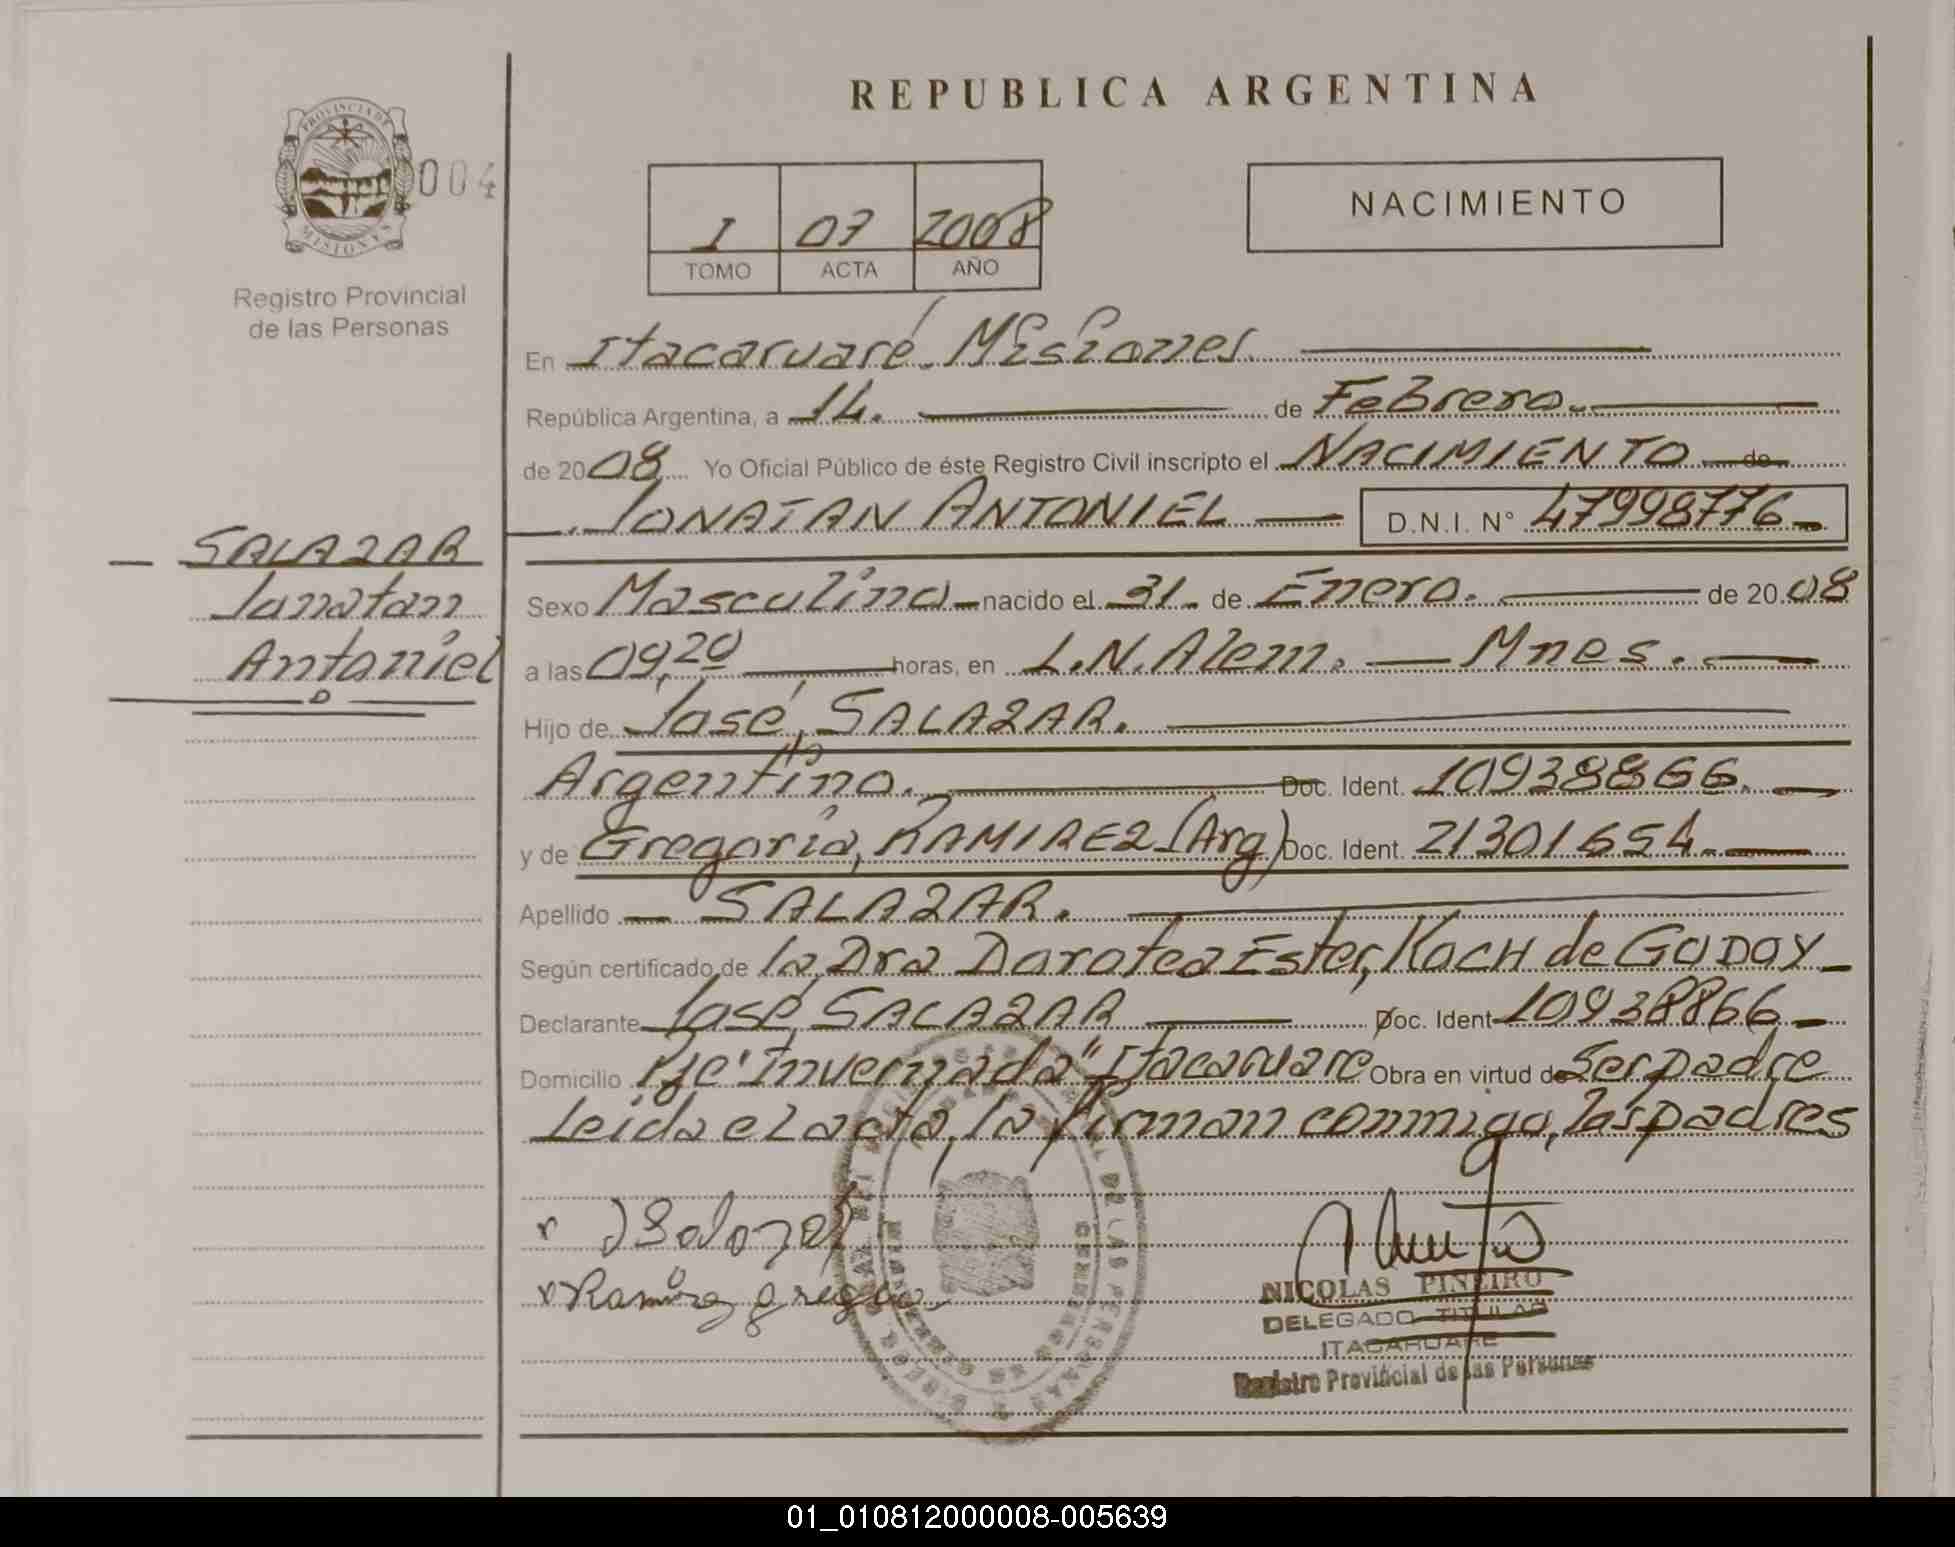 REPUBLICA ARGENTINA
PROVINCIA DE
MISIONES
004
Registro Provincial
de las Personas
I 07 2008
TOMO ACTA AÑO
NACIMIENTO
En Itacaruaré. Misiones.
República Argentina, a 14. de Febrero.
de 2008 Yo Oficial Público de éste Registro Civil inscripto el NACIMIENTO de
JONATAN ANTONIEL D.N.I. N° 47998776
SALAZAR
Jonatan
Antoniel
Sexo Masculino nacido el 31 de Enero. de 2008
a las 09,20 horas, en L.N.Alem. Mnes.
Hijo de José, SALAZAR.
Argentino. Doc. Ident. 10938866.
y de Gregoria, RAMIREZ (Arg) Doc. Ident. 21301654.
Apellido SALAZAR.
Según certificado de la Dra Dorotea Ester, KOCH de GODOY
Declarante José, SALAZAR Doc. Ident 10938866
Domicilio Pje "Invernada" Itacaruare Obra en virtud de Ser padre
Leida el acta, la firman conmigo, los padres
J Salazar
Ramirez gregoria
NICOLAS PIÑEIRO
DELEGADO TITULAR
ITACARUARE
Registro Provincial de las Personas
01_010812000008-005639